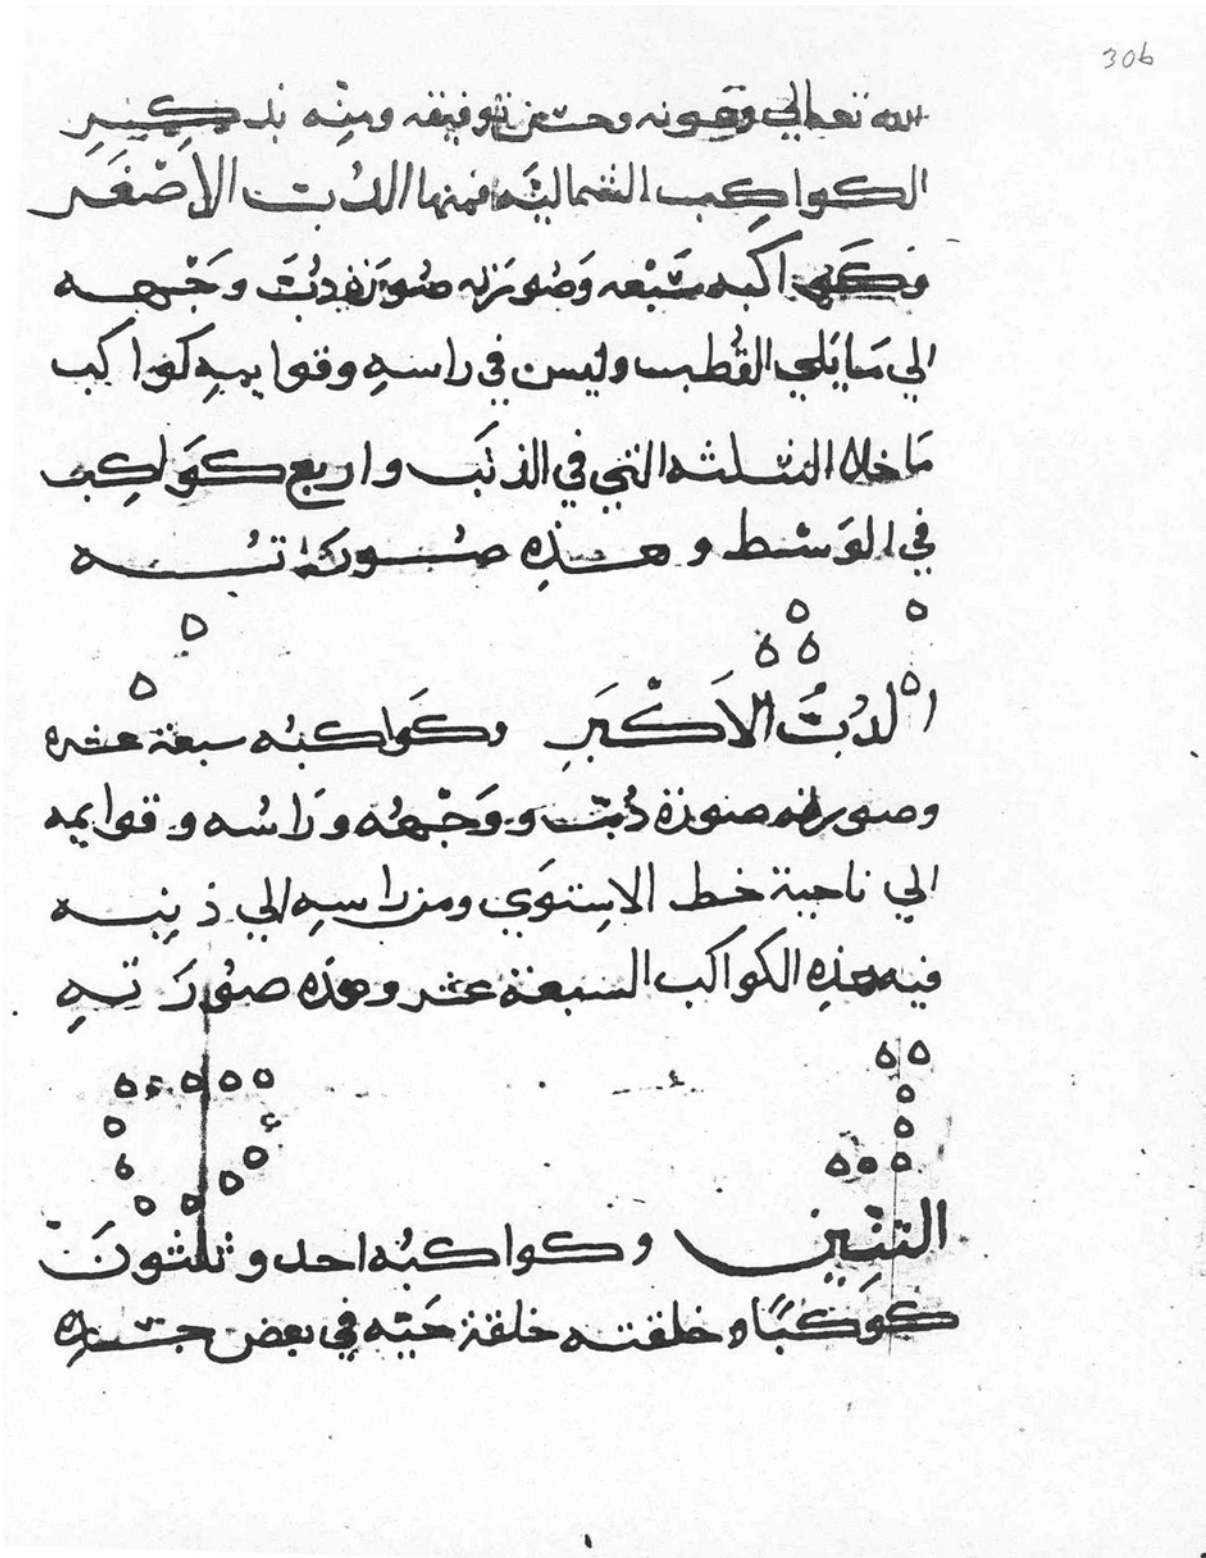 30b
الله تعالي وعونه وحسن توفيقه ومنّه بذكر
الكواكب الشمالية فمنها الدُب الأصْغَر
وكَواكبه سَبْعه وَصُورَته صُورَة دُبّ وَجْهه
الي مَا يَلي القُطب وليس في راسهِ وقوايمهِ كواكب
مَا خلا الثلثه التي في الذنَب واربع كَوَاكِب
في الوَسْط وهذهِ صُورَتُه
الدُبّ الاَكْبَرِ وكَواكبُه سبعة عشره
وصورته صورة دُبّ ووَجْهُه ورَاسُه وقوايمه
الي ناحية خط الاِستوَي ومن راسهِ الي ذنبِه
فيه هذهِ الكواكب السبعة عشر وهذه صُورَتهِ
التنّين وكواكبُه احد وثلثونَ
كَوكَبًا وخلقته خلقة حَيّه في بعض جسدهِ